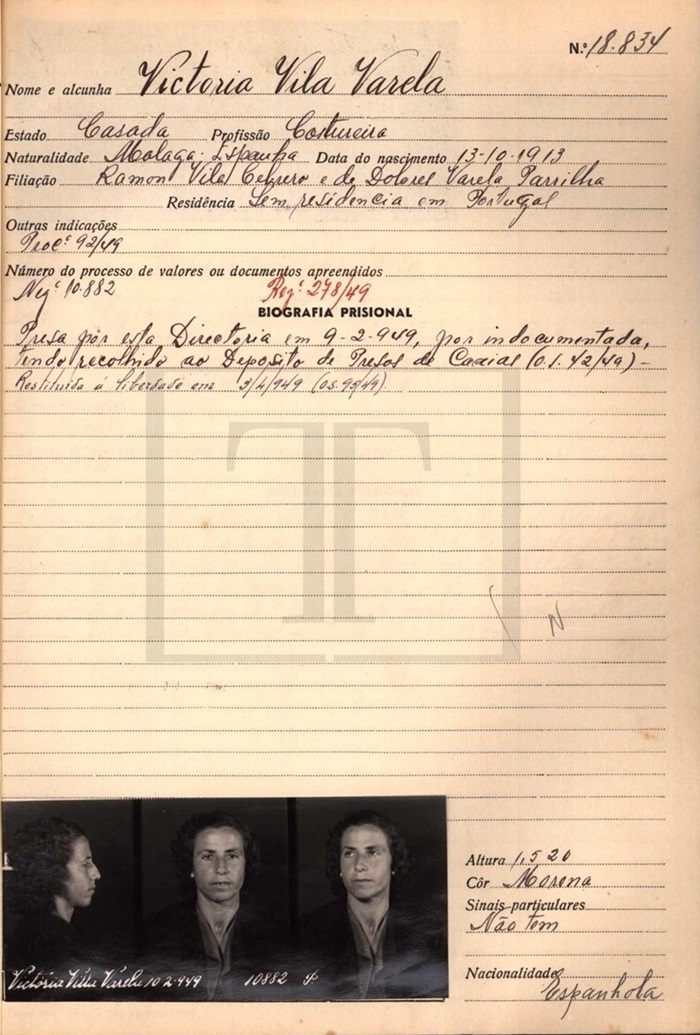 N.º 18.834
Nome e alcunha Victoria Vila Varela
Estado Casada Profissão Costureira
Naturalidade Malaga-Espanha Data do nascimento 13-10-1913
Filiação Ramon Vila Cenrero e de Dolores Varela Parrilha
Residência Sem residencia em Portugal
Outras indicações
Procº 92/49
Número do processo de valores ou documentos apreendidos
Negº 10.882 Regº 278/49
BIOGRAFIA PRISIONAL
Presa por esta Directoria em 9-2-949, por indocumentada,
tendo recolhido ao Deposito de Presos de Caxias (O.S. 42/49) -
Restituida á liberdade em 3/4/949 (OS.95/49)
N
Altura 1,520
Côr Morena
Sinais particulares
Não tem
Victória Villa Varela 10-2-949 10882
Nacionalidade
Espanhola